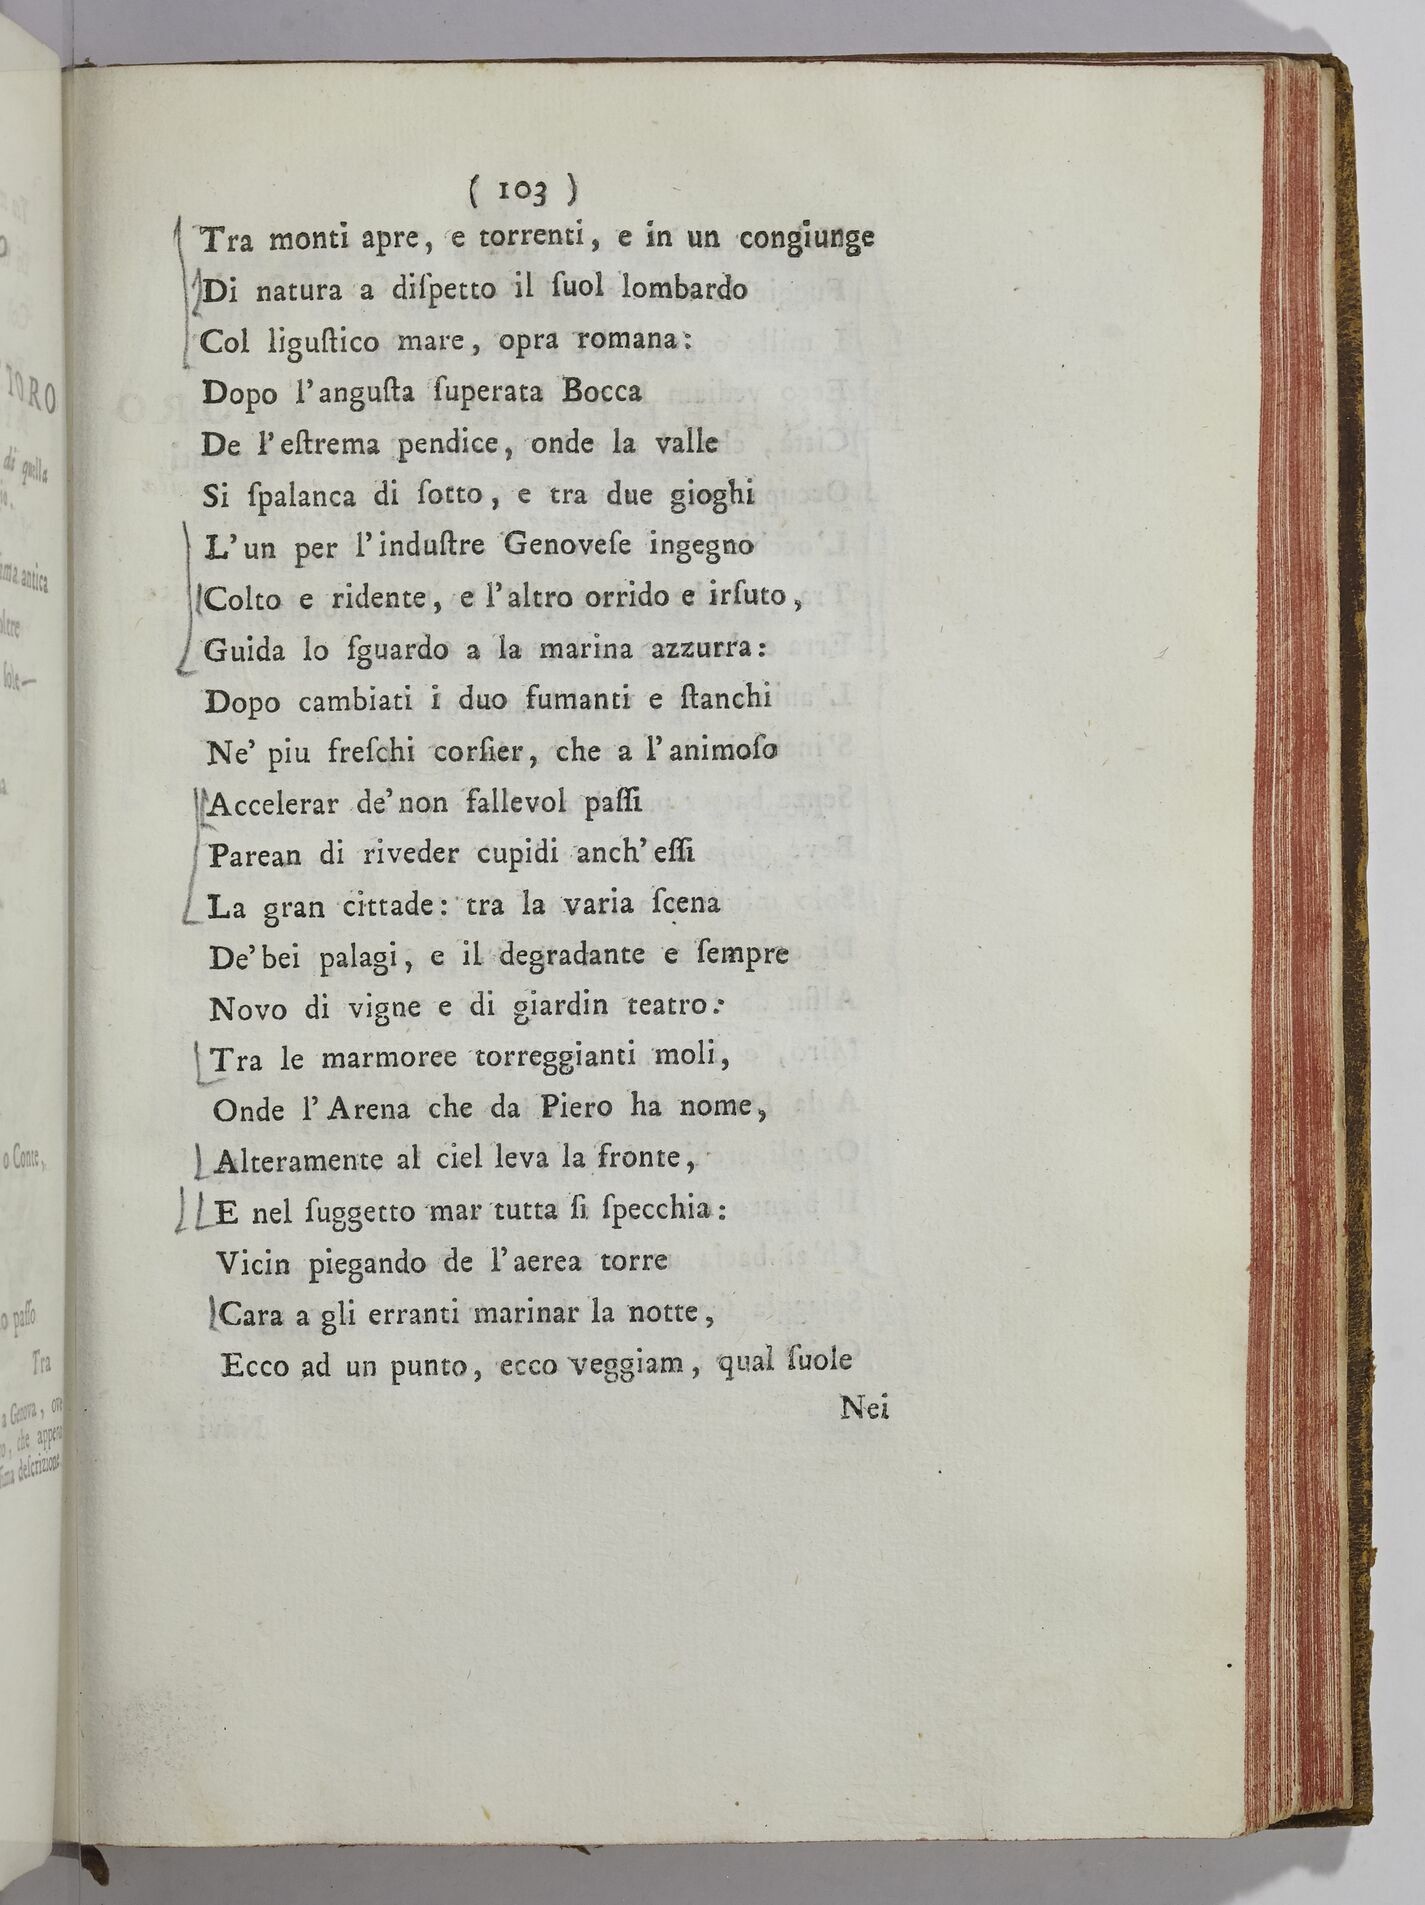 ( 103 )
Tra monti apre, e torrenti, e in un congiunge
Di natura a diſpetto il ſuol lombardo
Col liguſtico mare, opra romana:
Dopo l'anguſta ſuperata Bocca
De l'eſtrema pendice, onde la valle
Si ſpalanca di ſotto, e tra due gioghi
L'un per l'induſtre Genoveſe ingegno
Colto e ridente, e l'altro orrido e irſuto,
Guida lo ſguardo a la marina azzurra:
Dopo cambiati i duo fumanti e ſtanchi
Ne' piu freſchi corſier, che a l'animoſo
Accelerar de' non fallevol paſſi
Parean di riveder cupidi anch' eſſi
La gran cittade: tra la varia ſcena
De' bei palagi, e il degradante e ſempre
Novo di vigne e di giardin teatro:
Tra le marmoree torreggianti moli,
Onde l'Arena che da Piero ha nome,
Alteramente al ciel leva la fronte,
E nel ſuggetto mar tutta ſi ſpecchia:
Vicin piegando de l'aerea torre
Cara a gli erranti marinar la notte,
Ecco ad un punto, ecco veggiam, qual ſuole
Nei
TORO
di quella
antica
ſole—
o Conte,
paſſo
Tra
a Genova, ove
che appena
deſcrizione